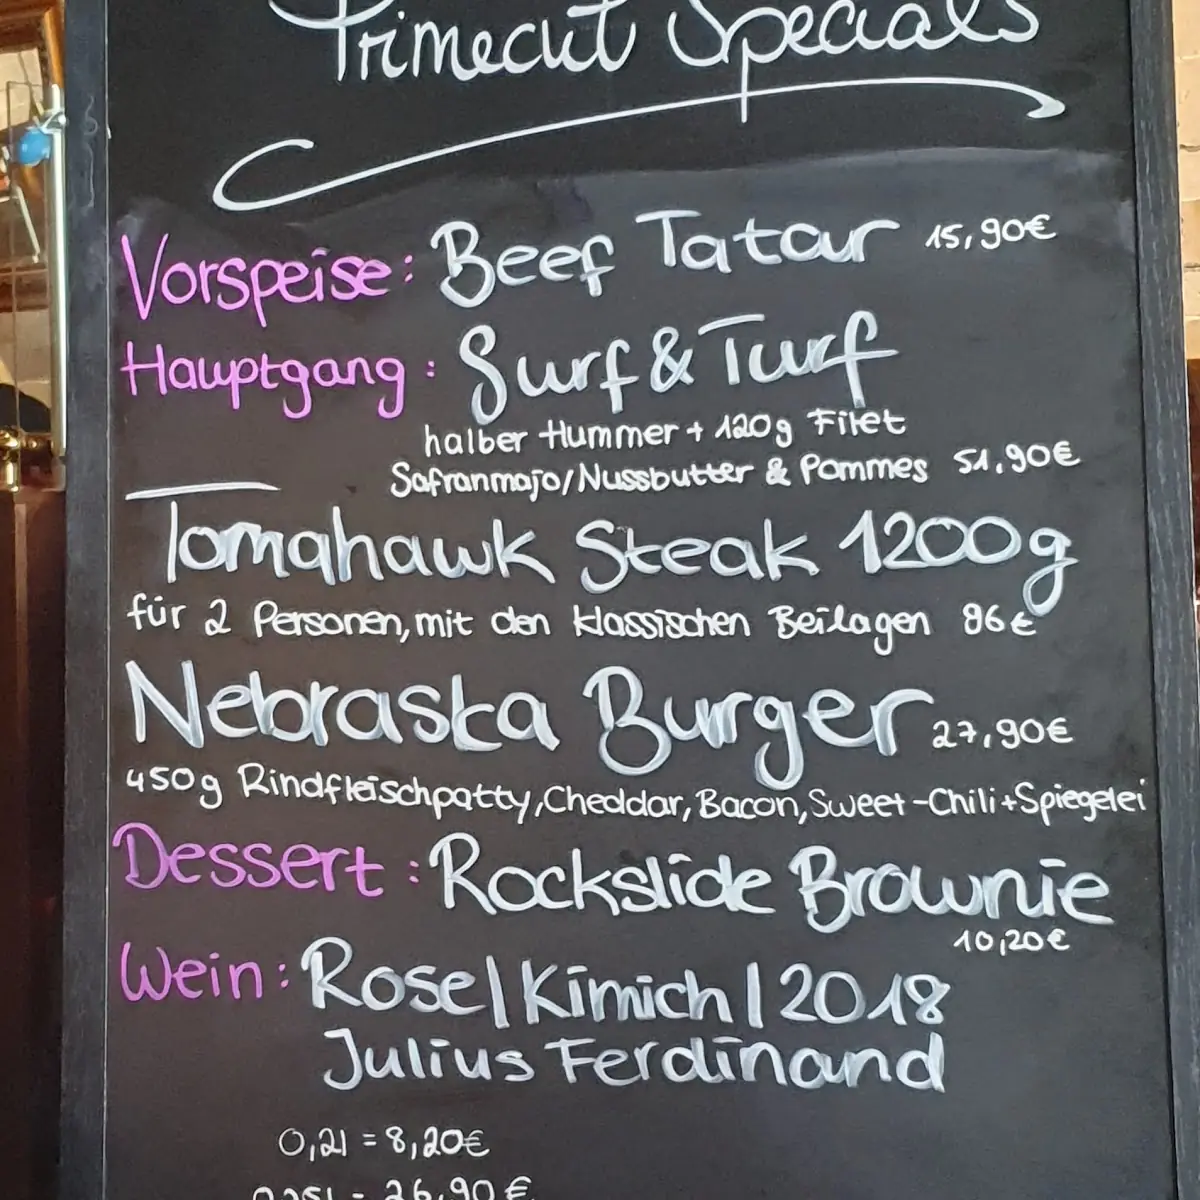 Primecut Specials
Vorspeise: Beef Tatar 15,90€
Hauptgang: Surf & Turf
halber Hummer + 120g Filet
Safranmajo/Nussbutter & Pommes 51,90€
Tomahawk Steak 1200g
für 2 Personen, mit den klassischen Beilagen 96€
Nebraska Burger 27,90€
450g Rindfleischpatty, Cheddar, Bacon, Sweet-Chili + Spiegelei
Dessert: Rockslide Brownie
10,20€
Wein: Rose | Kimich | 2018
Julius Ferdinand
0,2l = 8,20€
0,75l = 26,90€